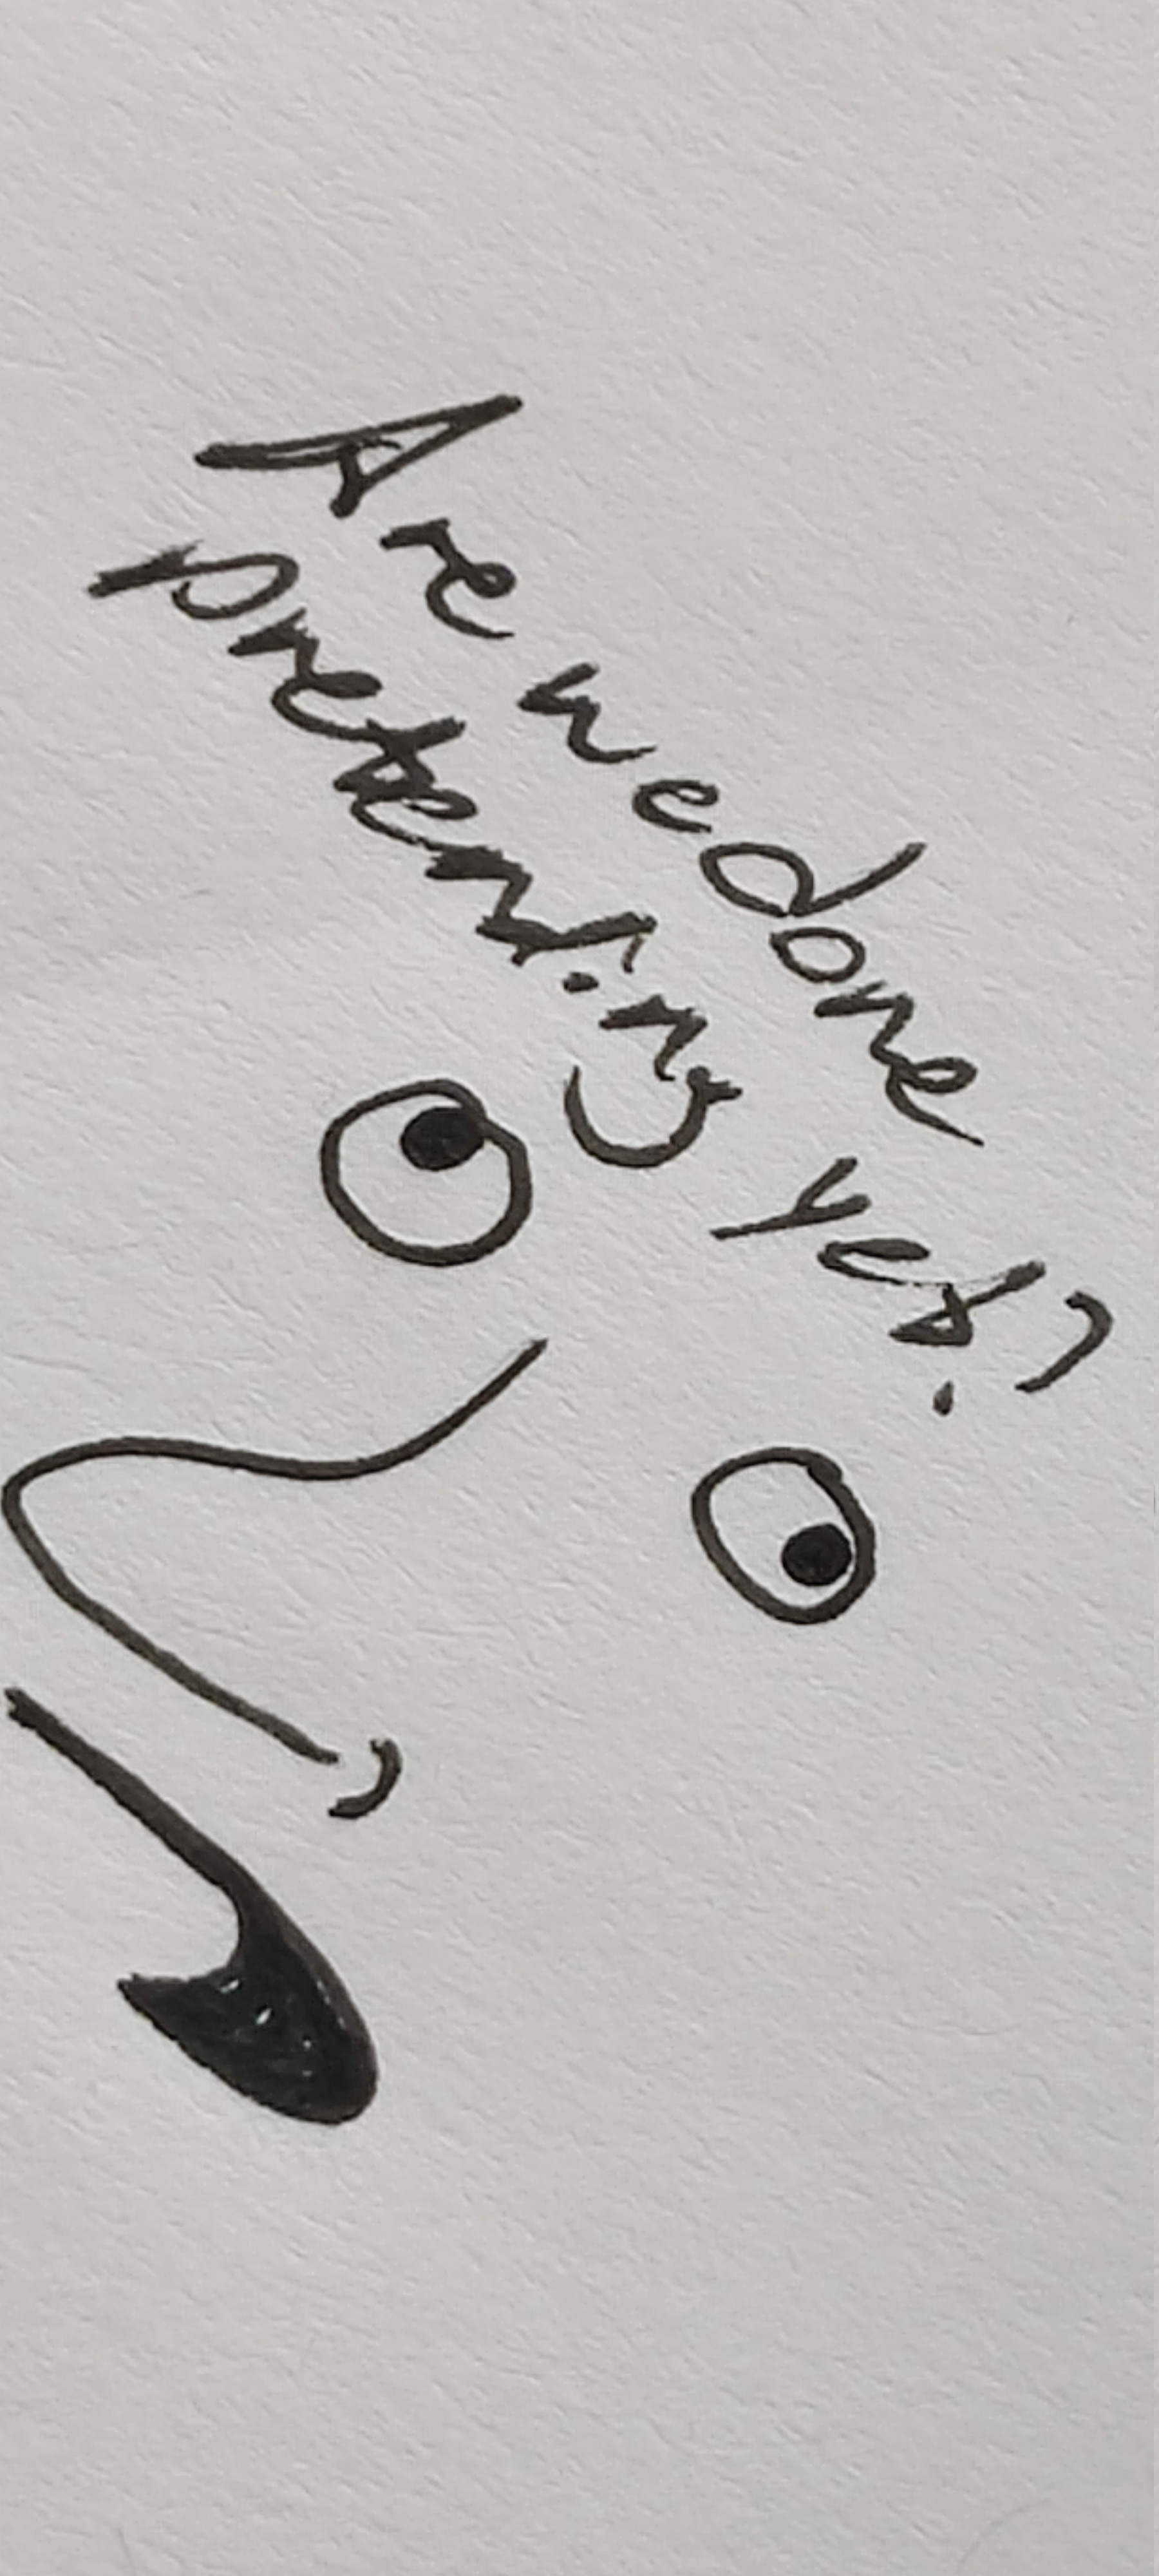 Are we done
pretending yes?